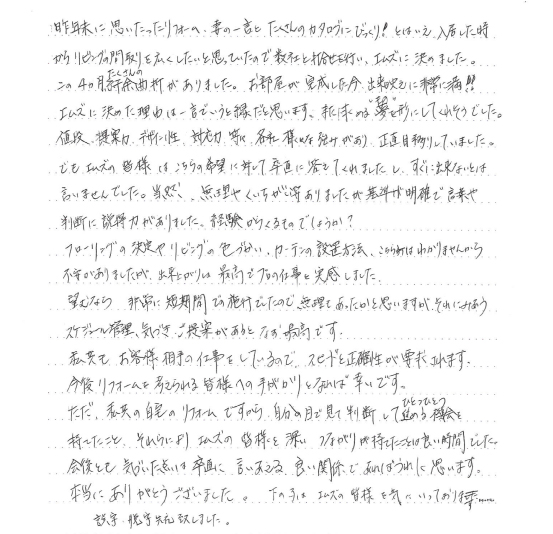 昨年末に思いたったリフォーム、妻の一言とたくさんのカタログにびっくり! とはいえ、入居した時
からリビングの間取りを広くしたいと思っていたので数社と打合せを行い、エムズに決めました。
この4ヶ月たくさんの紆余曲折がありました。お部屋が完成した今、出来栄えに非常に満足!!
エムズに決めた理由は一言でいうと縁だと思います。また求める“夢”を形にしてくれそうでした。
値段、提案力、デザイン性、対応力等に各社様々な強みがあり、正直目移りしていました。
でもエムズの皆様はこちらの希望に対して卒直に答えてくれましたし、すぐに出来ないとは
言いませんでした。当然、無理やくいちがい等ありましたが基準が明確で言葉や
判断に説得力がありました。経験からくるものでしょうか?
フローリングの決定やリビングの色づかい、カーテンの設置方法、こちらはわかりませんから
不安がありましたが、出来上がりは最高でプロの仕事と実感しました。
望むなら 非常に短期間での施行でしたので無理もあったかと思いますが、それにみあう
スケジュール管理、気づき、ご提案があるとなお最高です。
私共も、お客様相手の仕事をしているので、スピードと正確性が要求されます。
今後リフォームを考えられる皆様への手がかりとなれば幸いです。
ただ、私共の自宅のリフォームですから、自分の目で見て判断して進めるひとつひとつ機会を
持てたこと、それらによりエムズの皆様と深いつながりが持てたことは良い時間でした。
今後とも気づいた点は卒直に言いあえる良い関係であればうれしく思います。
本当にありがとうございました。 下の子はエムズの皆様を気にいっており〼……
誤字・脱字失礼致しました。